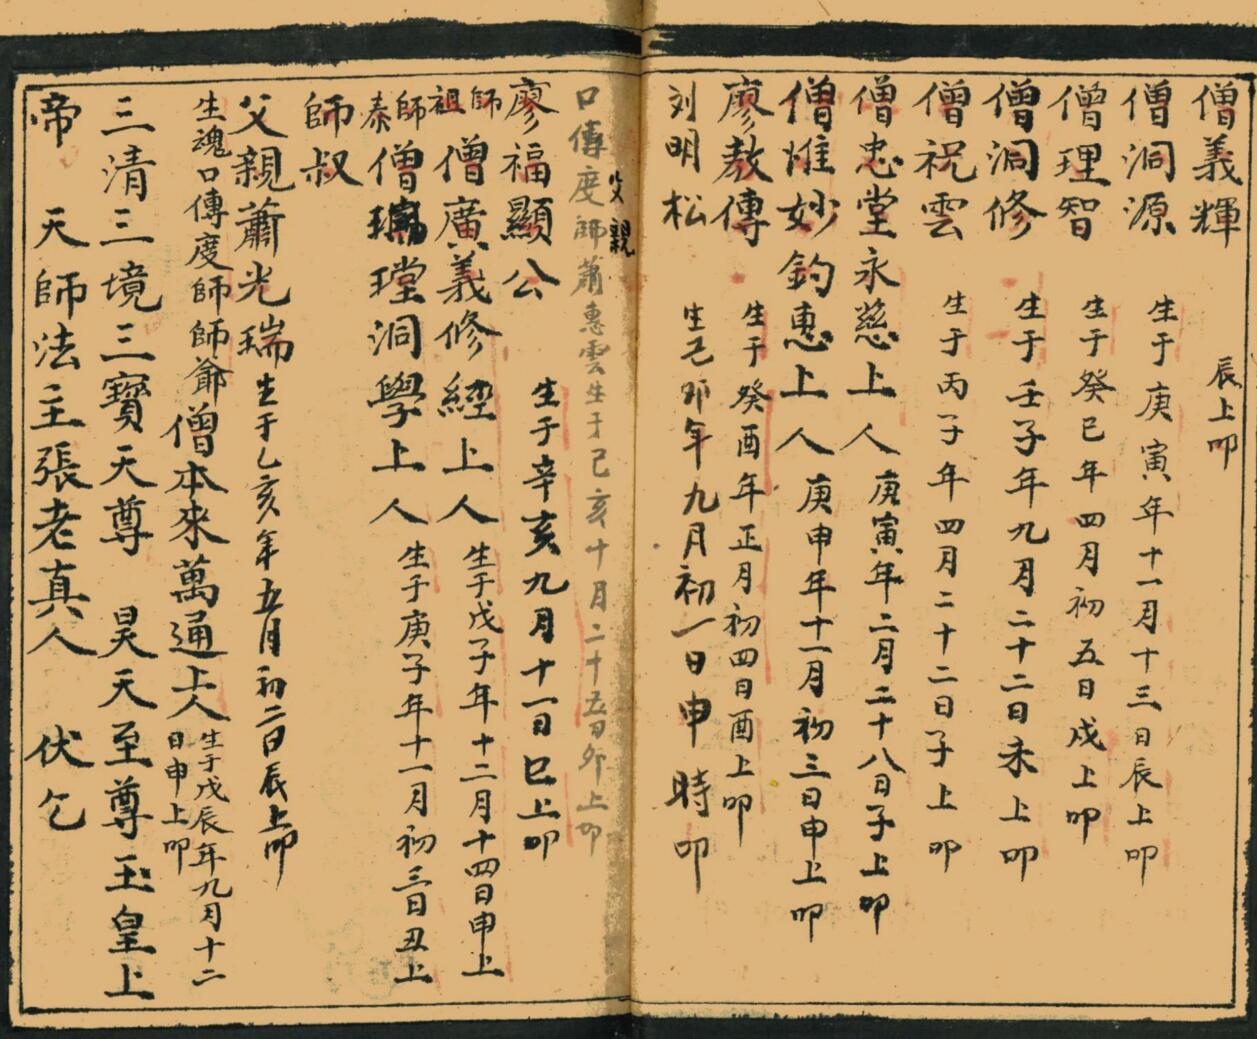 僧義輝 辰上叩
僧洞源 生于庚寅年十一月十三日辰上叩
僧理智 生于癸巳年四月初五日戌上叩
僧洞修 生于壬子年九月二十二日未上叩
僧祝雲 生于丙子年四月二十二日子上叩
僧忠堂永慈上人 庚寅年二月二十八日子上叩
僧惟妙鈞惠上人 庚申年十一月初三日申上叩
廖教傳 生于癸酉年正月初四日酉上叩
刘明松 生己卯年九月初一日申時叩
父親
口傳度師蕭惠雲生于己亥十月二十五日卯上叩
廖福顯公 生于辛亥九月十一日巳上叩
師祖 僧廣義修經上人 生于戊子年十二月十四日申上
師泰 僧瑞瑝洞學上人 生于庚子年十一月初三日丑上
師叔
父親蕭光瑞 生于乙亥年五月初二日辰上叩
生魂口傳度師師爺僧本來萬通上人 生于戊辰年九月十二日申上叩
三清三境三寳天尊 昊天至尊玉皇上
帝 天師法主張老真人 伏乞